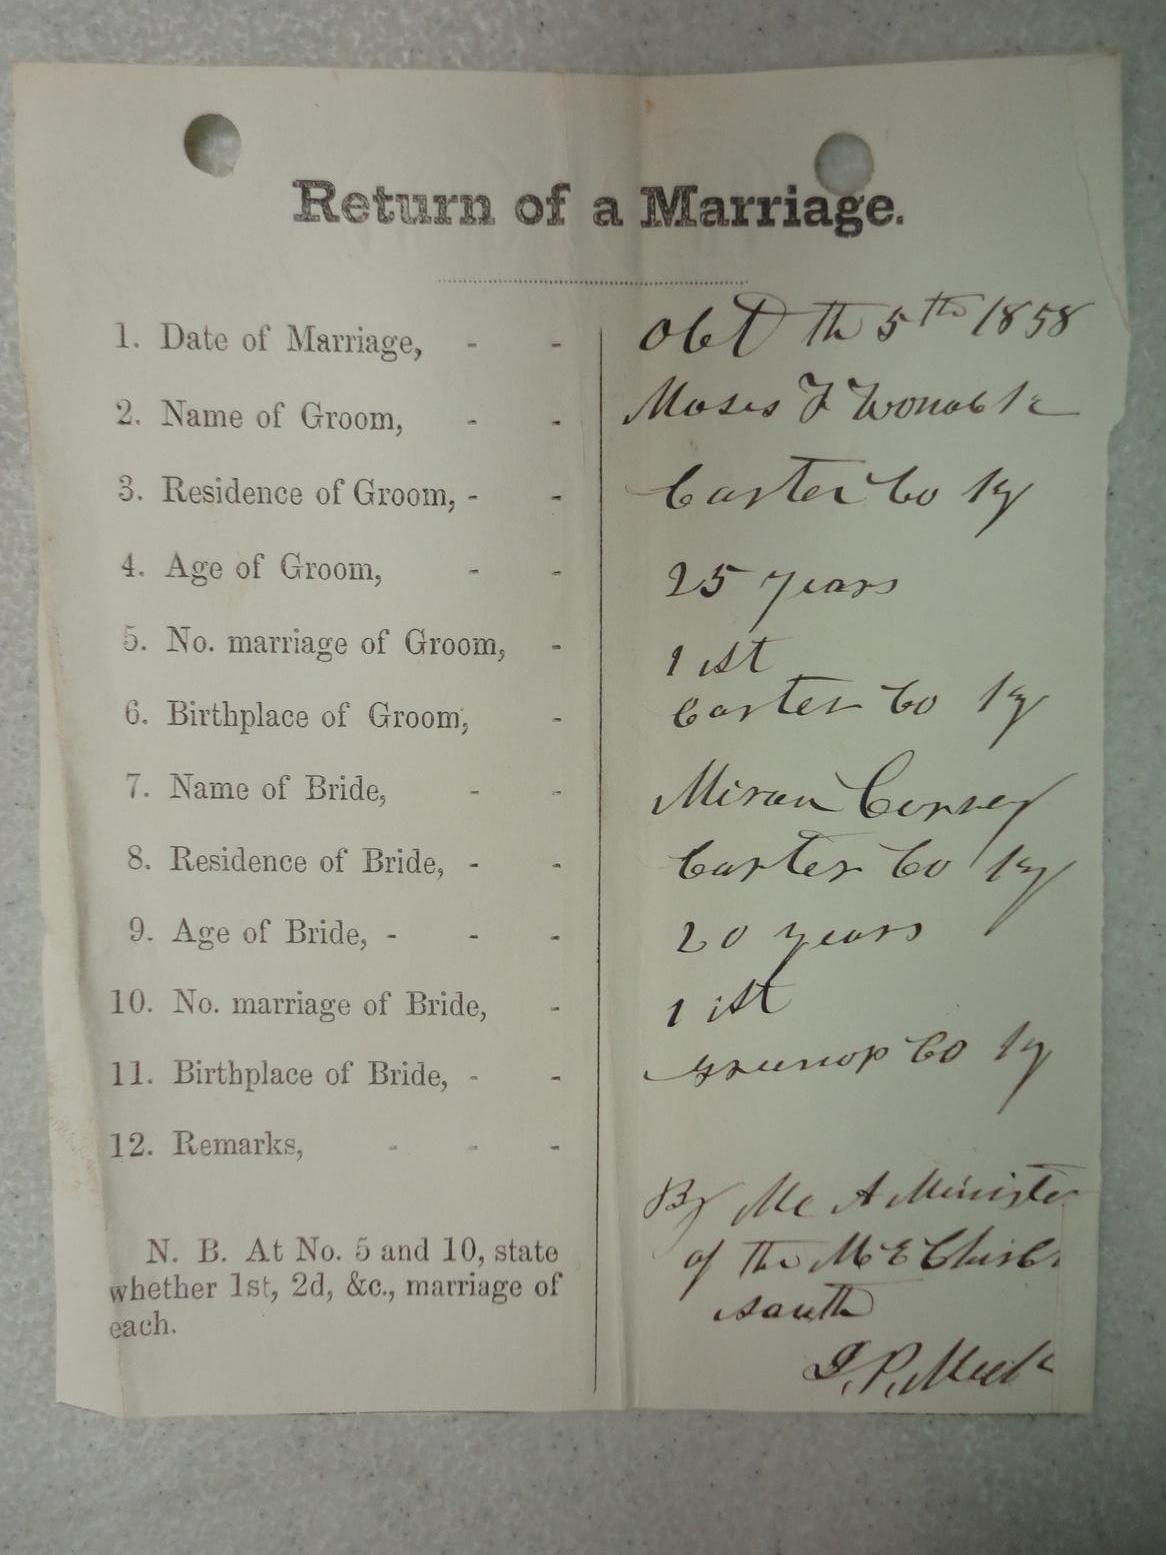 Return of a Marriage.
1. Date of Marriage, - - Oct th 5th 1858
2. Name of Groom, - - Moses F Womack
3. Residence of Groom, - - Carter Co Ky
4. Age of Groom, - - 25 years
5. No. marriage of Groom, - 1 ist
6. Birthplace of Groom, - Carter Co Ky
7. Name of Bride, - -
8. Residence of Bride, - - Carter Co Ky
9. Age of Bride, - - - 20 years
10. No. marriage of Bride, - 1 ist
11. Birthplace of Bride, - - Co Ky
12. Remarks, - - -
By Me A Minister
of the M E
south
Meek
N. B. At No. 5 and 10, state
whether 1st, 2d, &c., marriage of
each.